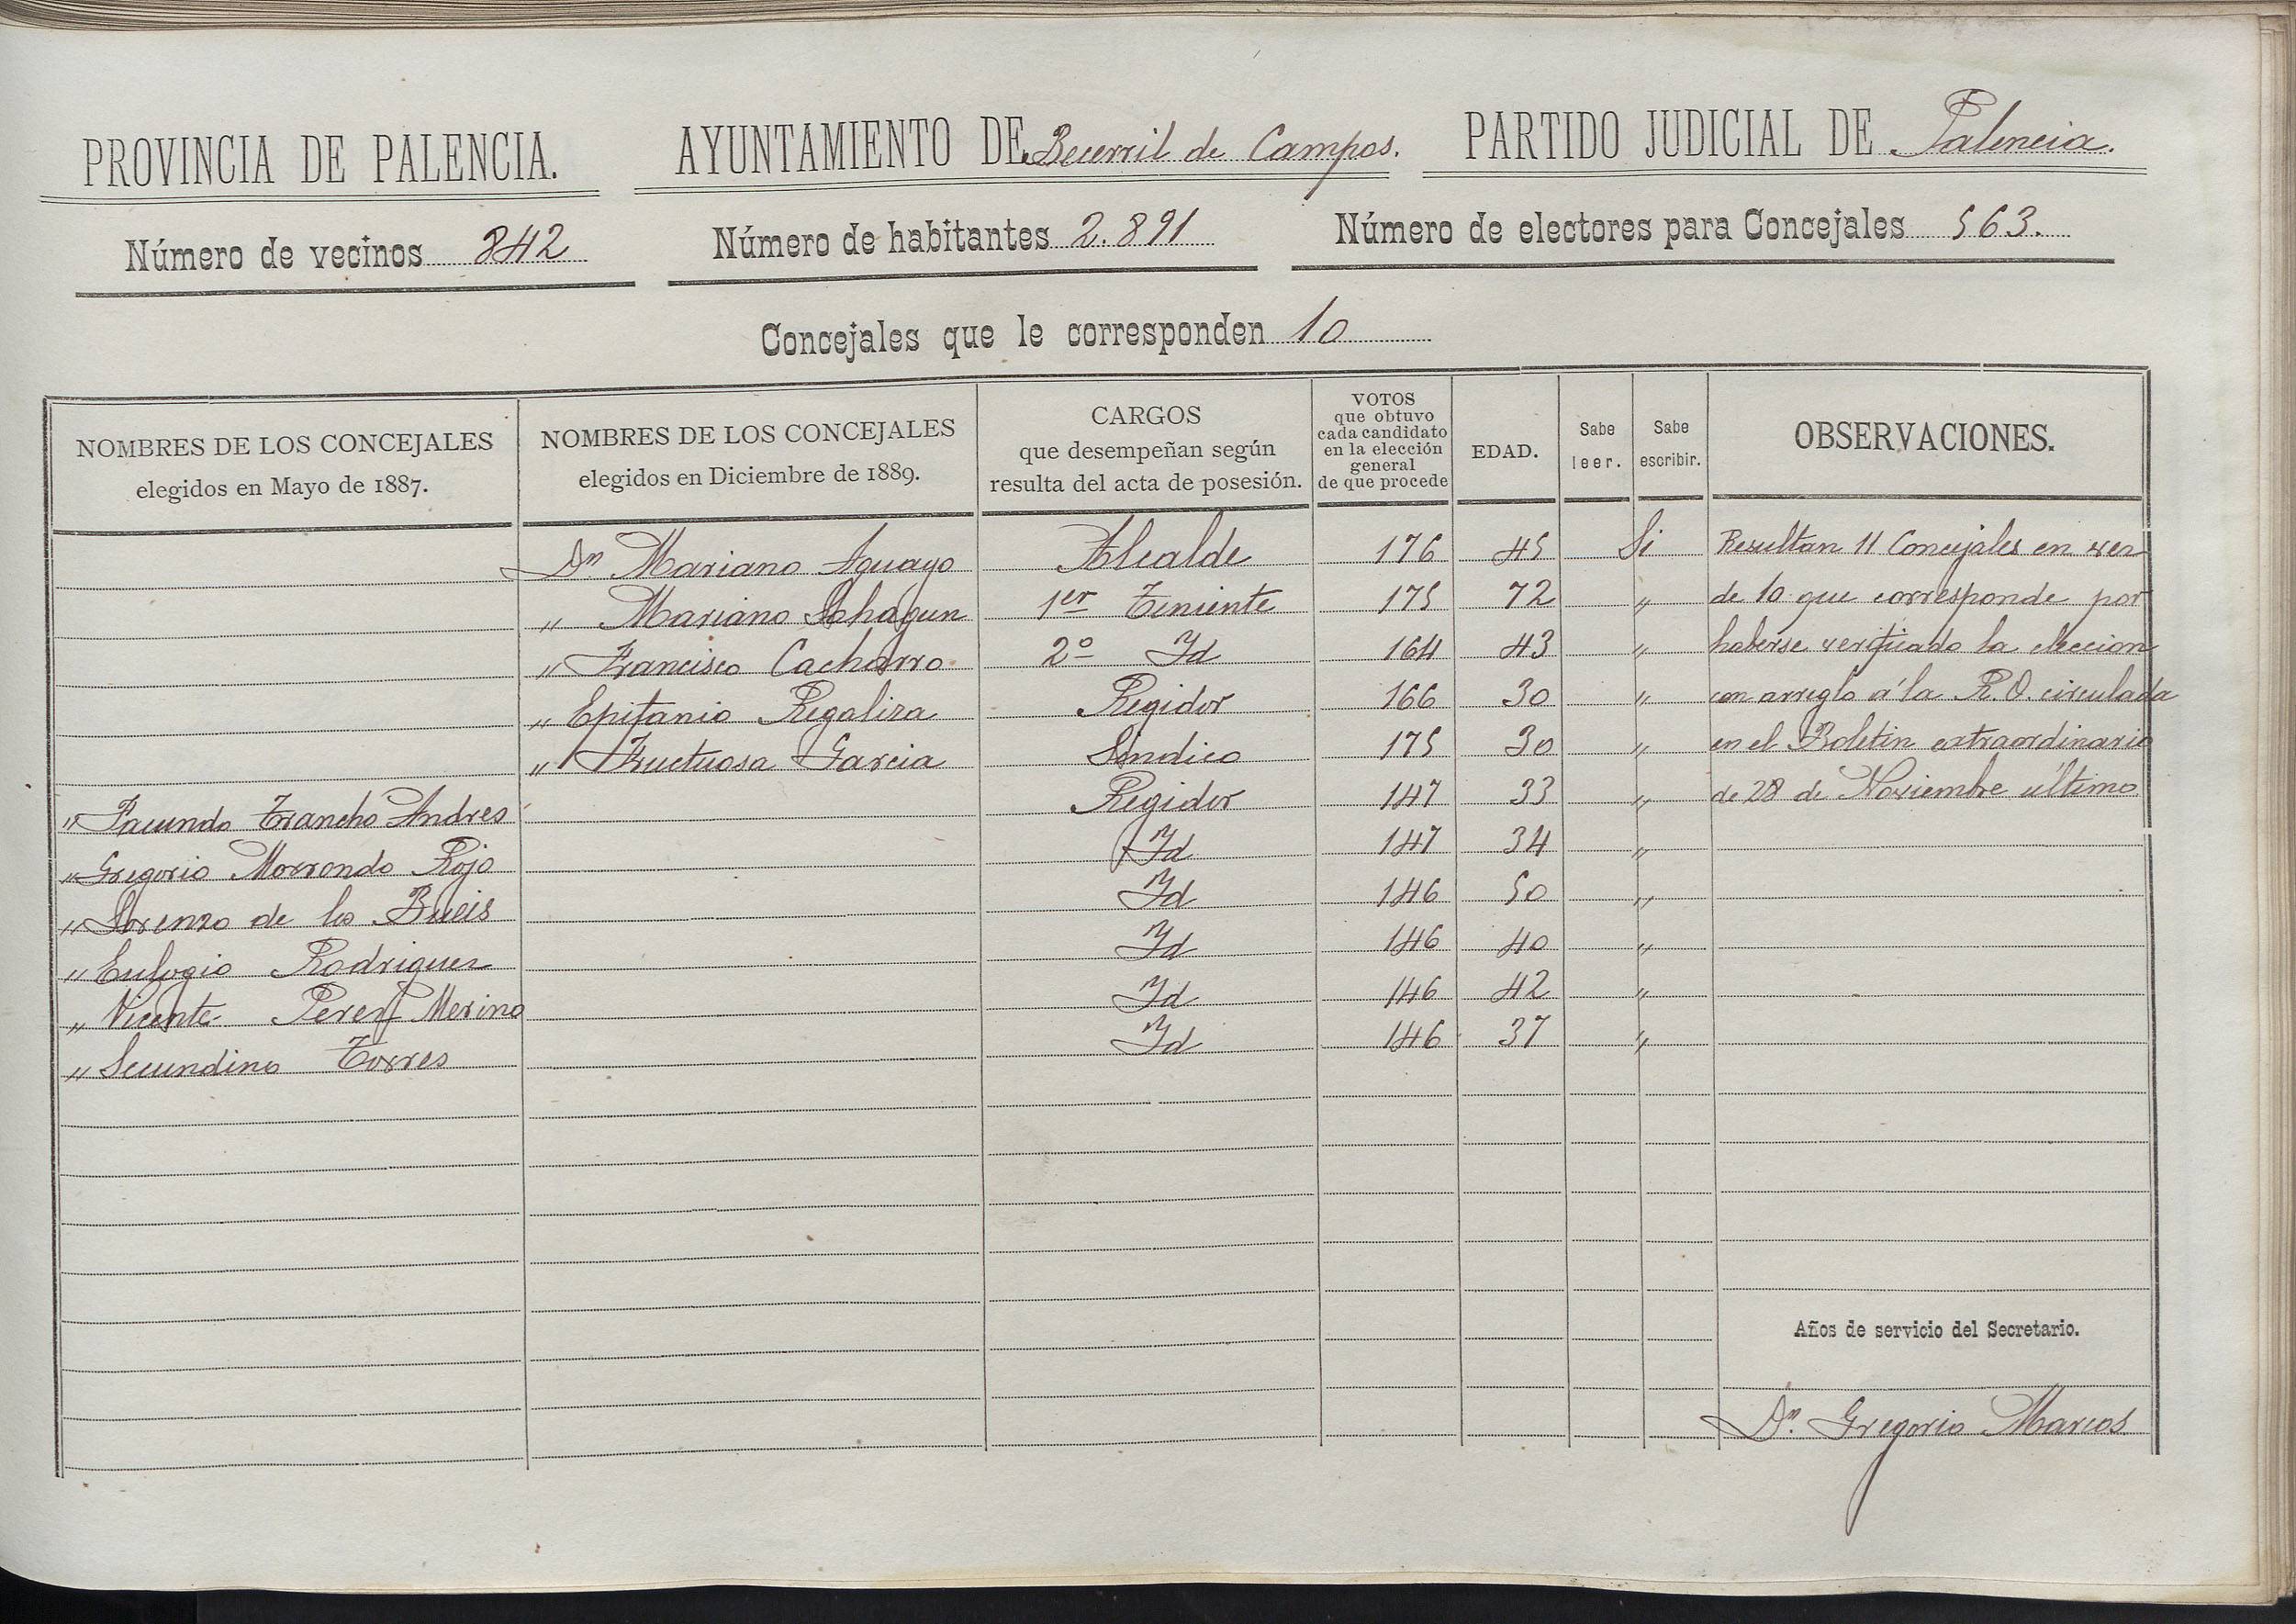 PROVINCIA DE PALENCIA. AYUNTAMIENTO DE Becerril de Campos. PARTIDO JUDICIAL DE Palencia.
Número de vecinos 842 Número de habitantes 2.891 Número de electores para Concejales 563.
Concejales que le corresponden 10
NOMBRES DE LOS CONCEJALES
elegidos en Mayo de 1887.
NOMBRES DE LOS CONCEJALES
elegidos en Diciembre de 1889.
CARGOS
que desempeñan según
resulta del acta de posesión.
VOTOS
que obtuvo
cada candidato
en la elección
general
de que procede
EDAD.
Sabe
leer.
Sabe
escribir.
OBSERVACIONES.
Dn. Mariano Aguayo Alcalde 176 45 Si Resultan 11 Concejales en vez
" Mariano Sahagun 1er Teniente 175 72 " de 10 que corresponde por
" Francisco Cacharro 2º Id 164 43 " haberse verificado la eleccion
" Epifanio Regaliza Regidor 166 30 " con arreglo á la R. O. circulada
" Fructuoso Garcia Sindico 175 30 " en el Boletin extraordinario
" Facundo Trancho Andres Regidor 147 33 " de 28 de Noviembre último
" Gregorio Morrondo Rojo Id 147 34 "
" Lorenzo de los Bueis Id 146 50 "
" Eulogio Rodriguez Id 146 40 "
" Vicente Perez Merino Id 146 42 "
" Secundino Torres Id 146 37 "
Años de servicio del Secretario.
Dn. Gregorio Marcos